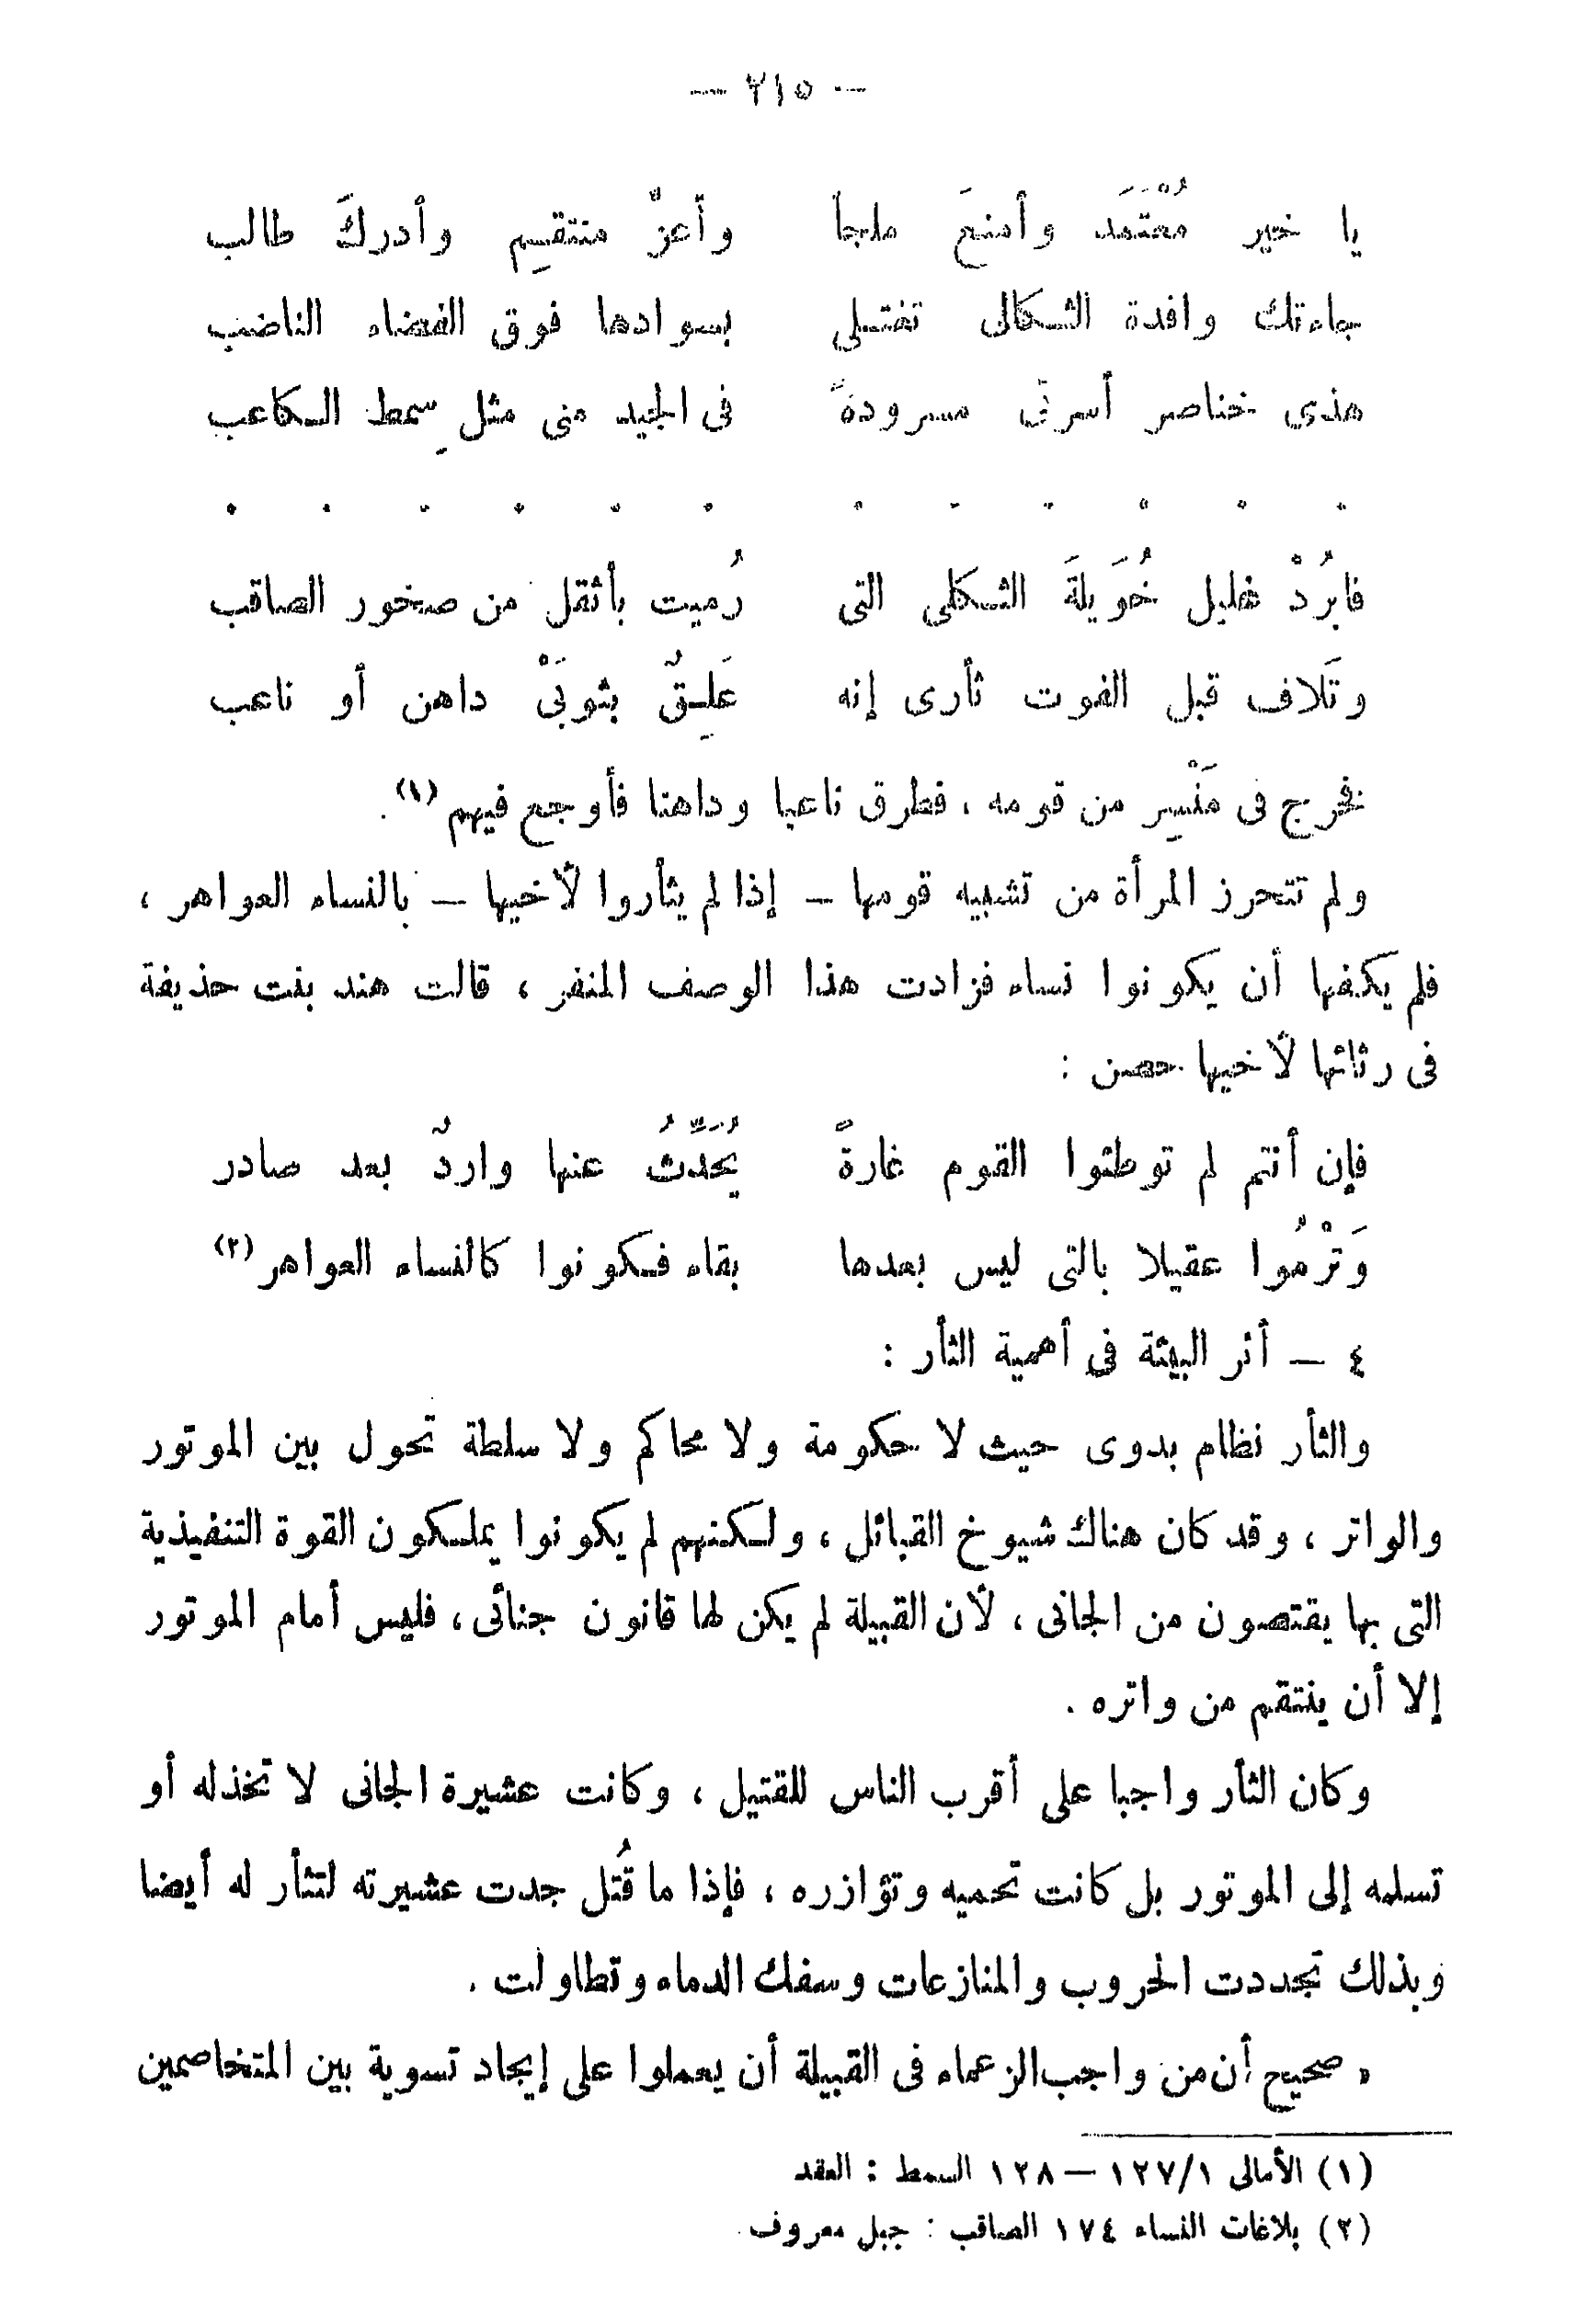 — ٢١٥ —
يا خير مُعْتَمَد وأمنعَ ملجأ وأعزَّ منتقِيم وأدركَ طالب
جاءتك وافدة الثكالى تغتلى بسوادها فوق الفضاء الناضب
هذى خناصر أسرتى مسرودةً فى الجيد منى مثل سِمط الكاعب
. . . . . . . . . . . .
فابرُدْ غليل خُوَيلةَ الثكلى التى رُميت بأثقل من صخور الصاقب
وتَلاف قبل الفوت ثأرى إنه عَلِقٌ بثوبَىْ داهن أو ناعب
فخرج فى مَنْسِر من قومه ، فطرق ناعبا وداهنا فأوجع فيهم (١) .
ولم تتحرز المرأة من تشبيه قومها — إذا لم يثأروا لأخيها — بالنساء العواهر ،
فلم يكفها أن يكونوا نساء فزادت هذا الوصف المنفر ، قالت هند بنت حذيفة
فى رثائها لأخيها حصن :
فإن أنتم لم توطئوا القوم غارةً يُحَدِّثُ عنها واردٌ بعد صادر
وَتَرْمُوا عقيلا بالتى ليس بعدها بقاء فكونوا كالنساء العواهر (٢)
٤ — أثر البيئة فى أهمية الثأر :
والثأر نظام بدوى حيث لا حكومة ولا محاكم ولا سلطة تحول بين الموتور
والواتر ، وقد كان هناك شيوخ القبائل ، ولكنهم لم يكونوا يملكون القوة التنفيذية
التى بها يقتصون من الجانى ، لأن القبيلة لم يكن لها قانون جنائى ، فليس أمام الموتور
إلا أن ينتقم من واتره .
وكان الثأر واجبا على أقرب الناس للقتيل ، وكانت عشيرة الجانى لا تخذله أو
تسلمه إلى الموتور بل كانت تحميه وتؤازره ، فإذا ما قُتل جدت عشيرته لتثأر له أيضا
وبذلك تجددت الحروب والمنازعات وسفك الدماء وتطاولت .
« صحيح أن من واجب الزعماء فى القبيلة أن يعملوا على إيجاد تسوية بين المتخاصمين
(١) الأمالى ١/١٢٧ — ١٢٨ السمط : العقد
(٢) بلاغات النساء ١٧٤ الصاقب : جبل معروف